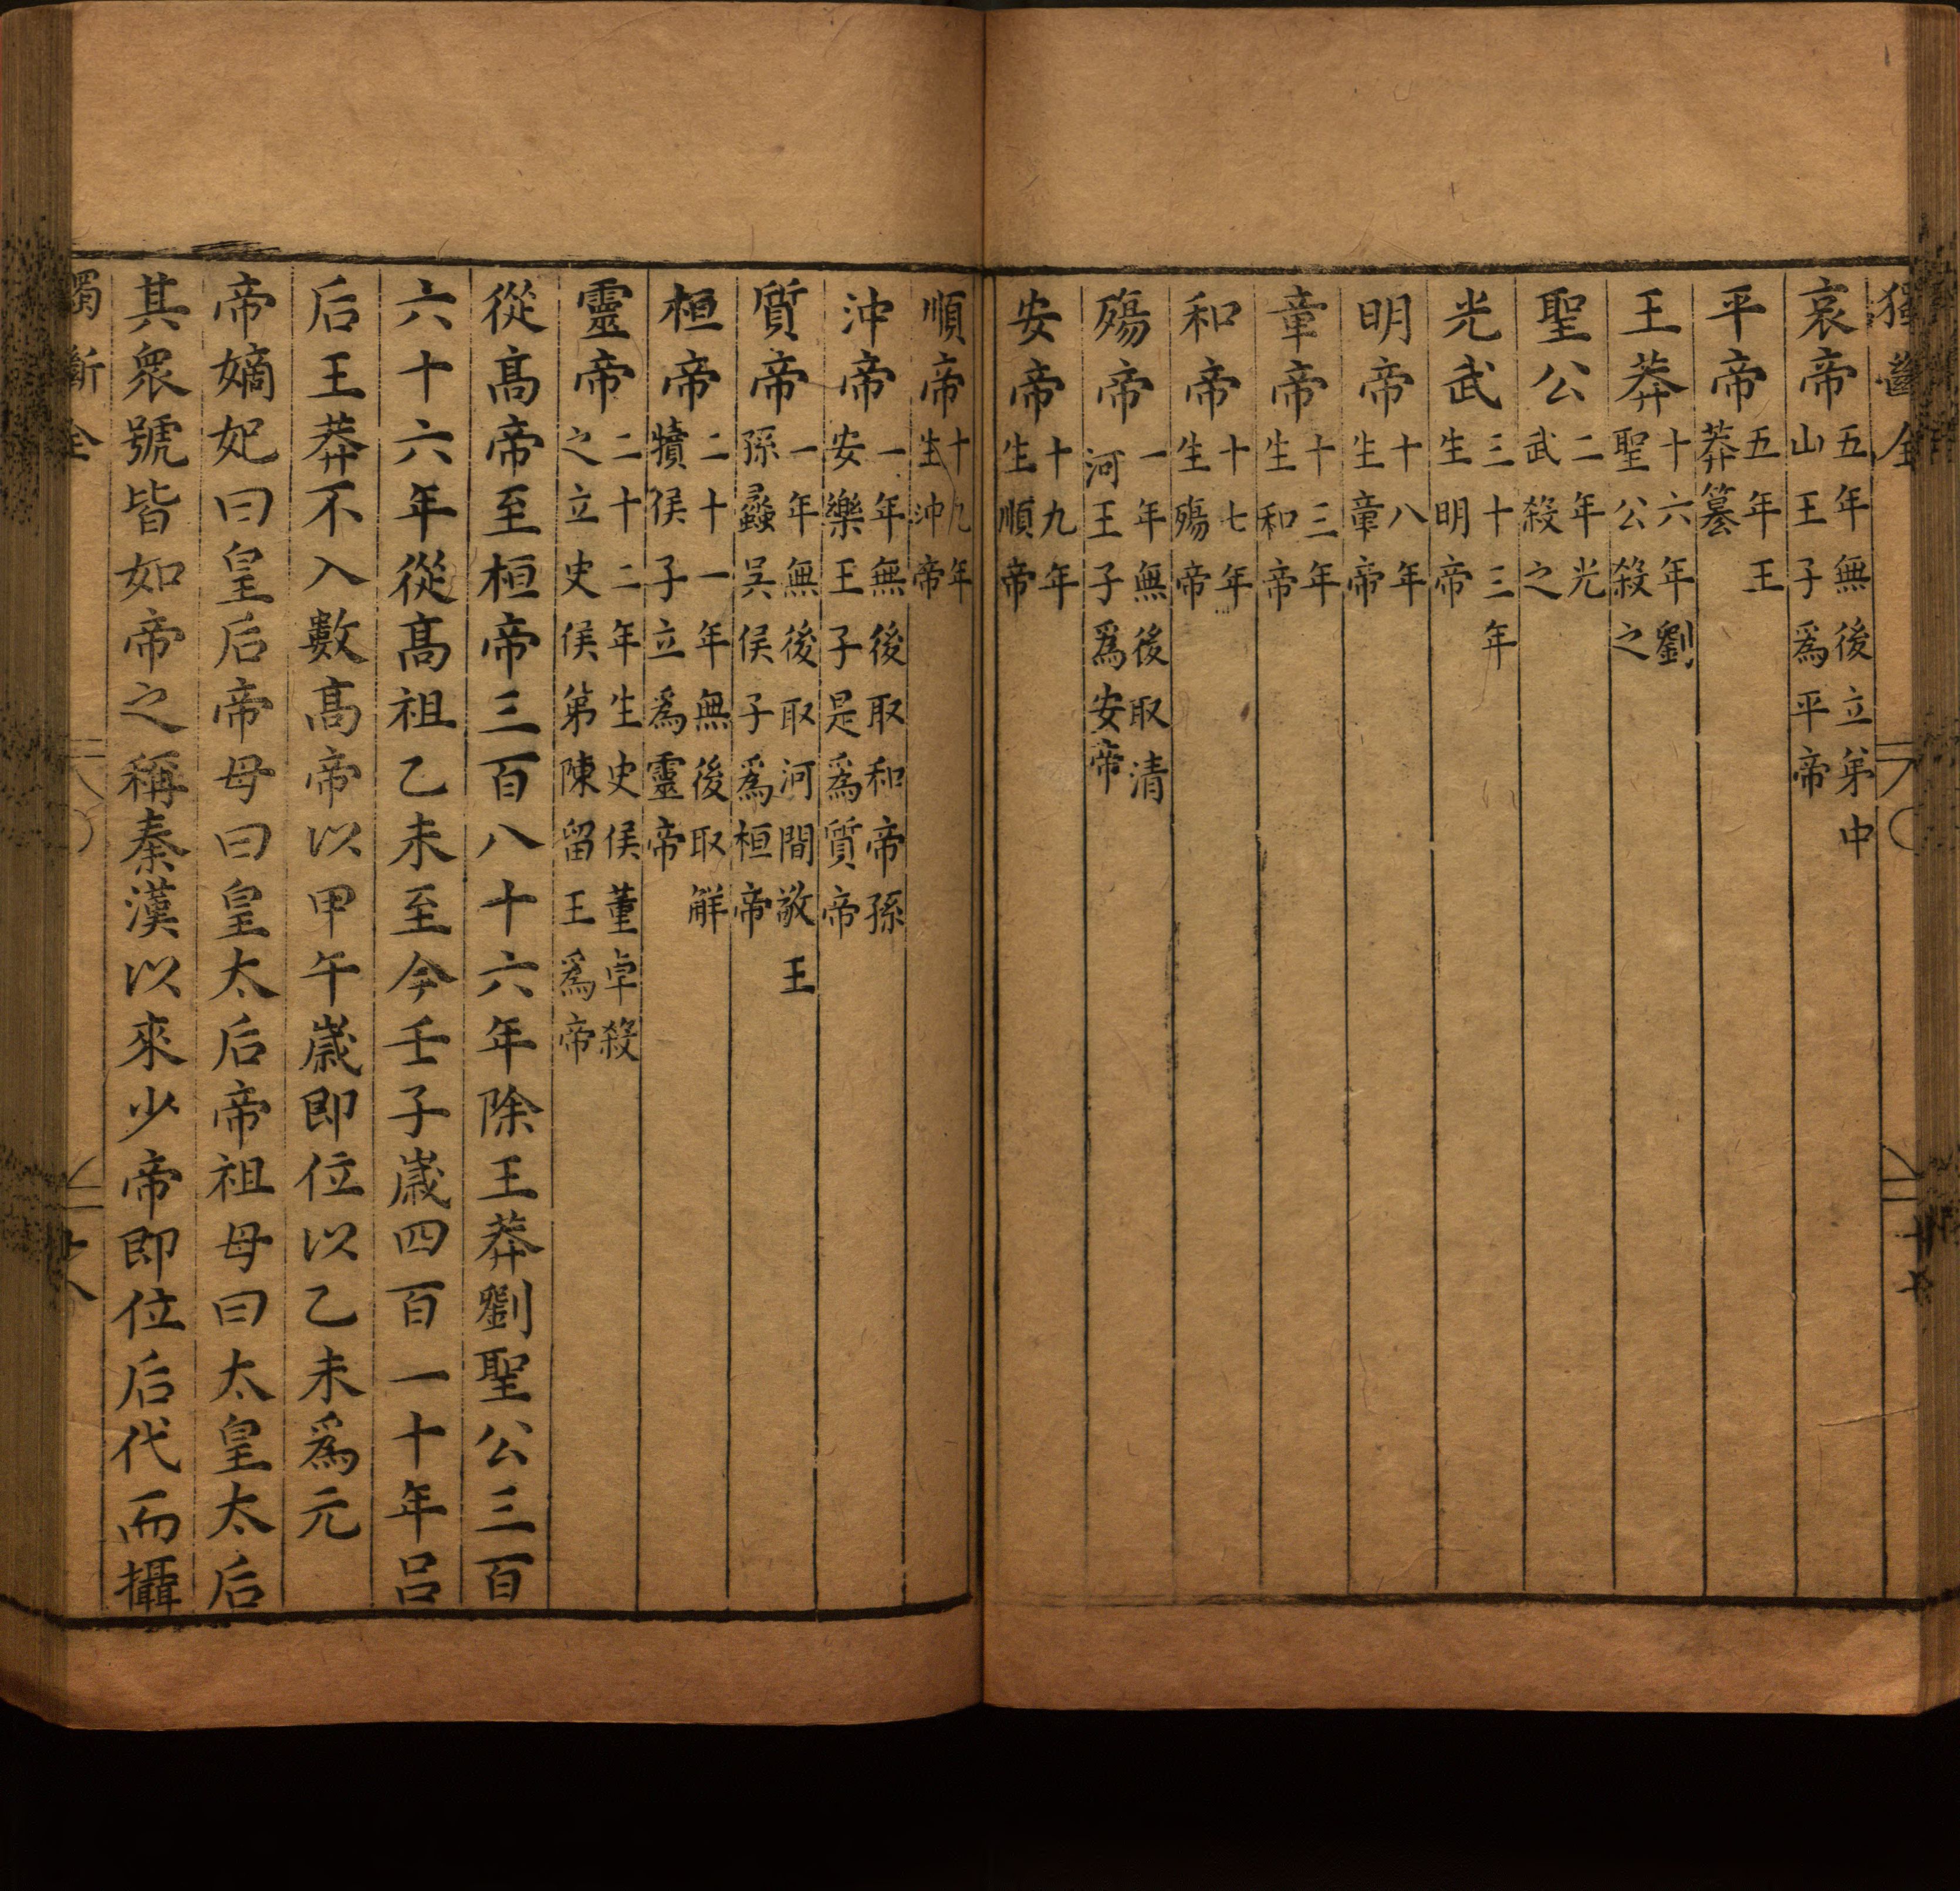 哀帝五年無後立弟中山王子爲平帝
平帝五年王莽簒
王莽十六年劉聖公殺之
聖公二年光武殺之
光武三十三年生明帝
明帝十八年生章帝
章帝十三年生和帝
和帝十七年生殤帝
殤帝一年無後取清河王子爲安帝
安帝十九年生順帝
順帝十九年生沖帝
沖帝一年無後取和帝孫安樂王子是爲質帝
質帝一年無後取河間敬王孫蠡吾侯子爲桓帝
桓帝二十一年無後取解犢侯子立爲靈帝
靈帝二十二年生史侯董卓殺之立史侯第陳留王爲帝
從髙帝至桓帝三百八十六年除王莽劉聖公三百
六十六年從髙祖乙未至今壬子歲四百一十年呂
后王莽不入數髙帝以甲午歲即位以乙未爲元
帝嫡妃曰皇后帝母曰皇太后帝祖母曰太皇太后
其衆號皆如帝之稱秦漢以來少帝即位后代而攝